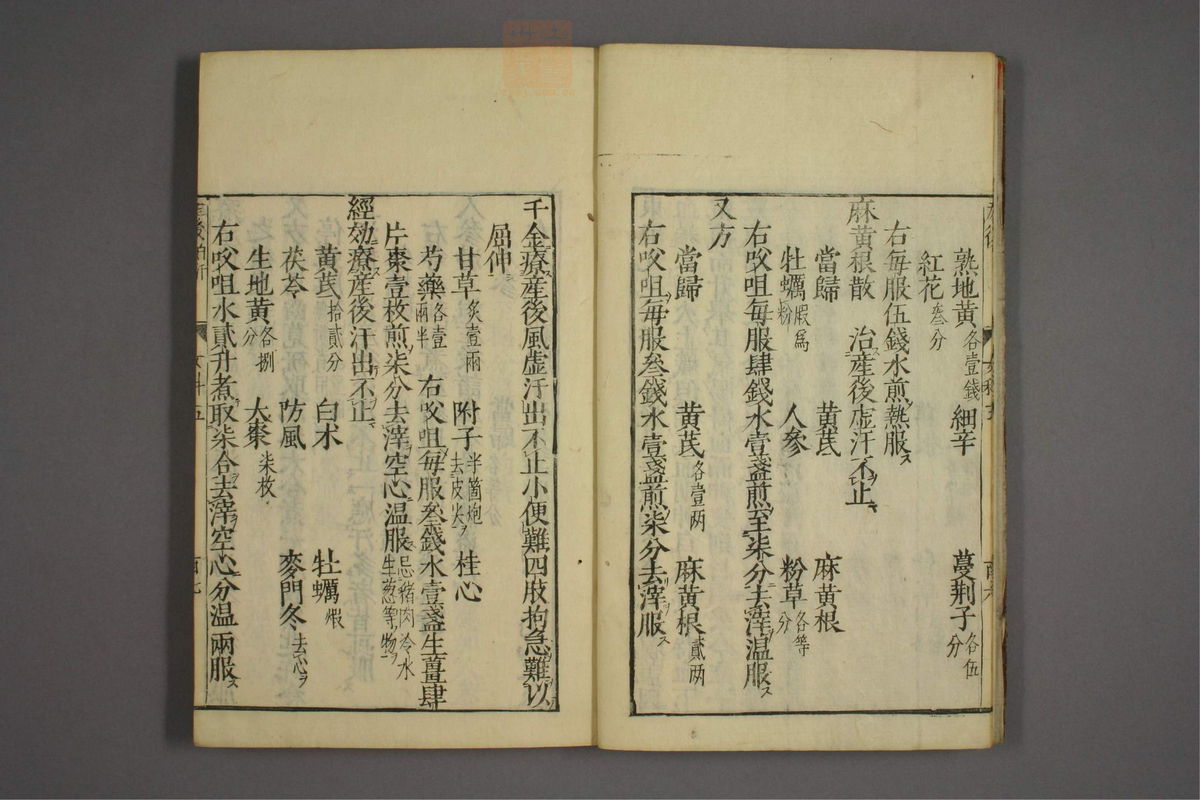 熟地黄各壹錢 細辛 蔓荆子各伍分
紅花叁分
右每服伍錢水煎熱服ス
麻黄根散 治産後虚汗不止
當歸 黄芪 麻黄根
牡蠣煆爲粉 人參 粉草各等分
右㕮咀每服肆錢水壹盞煎至柒分去滓温服ス
又方
當歸 黄芪各壹两 麻黄根貳两
右㕮咀每服叁錢水壹盞煎柒分去滓服ス
千金療産後風虚汗出不止小便難四肢拘急難以
屈伸
甘草炙壹兩 附子半箇炮去皮尖 桂心
芍藥各壹兩半 右㕮咀每服叁錢水壹盞生薑肆
片棗壹枚煎柒分去滓空心温服忌猪肉冷水生葱等物
經効療産後汗出不止
黄芪拾貳分 白术 牡蠣煆
茯苓 防風 麥門冬去心ヲ
生地黄各捌分 大棗柒枚
右㕮咀水貳升煮取柒合去滓空心分温兩服ス